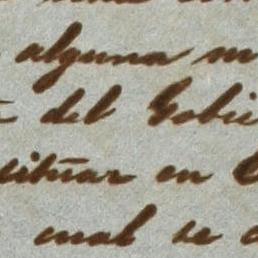 alguna
del Gobie
situar en
cual se